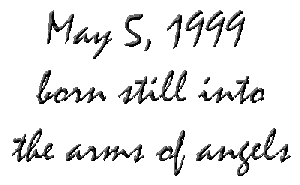 May 5, 1999
born still into
the arms of angels